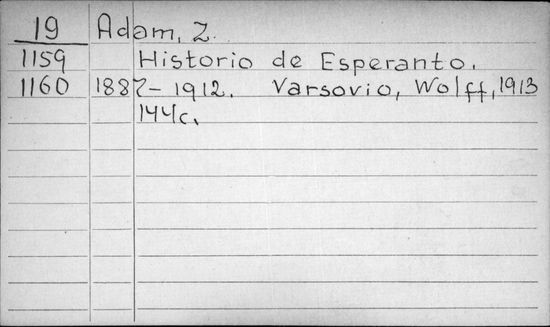 19 Adam, Z.
1159 Historio de Esperanto.
1160 1887-1912. Varsovio, Wolff, 1913
144c.